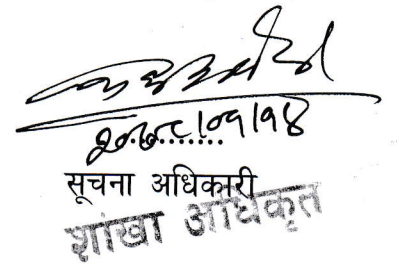 २०७८।०१।१४
सूचना अधिकारी
शाखा अधिकृत